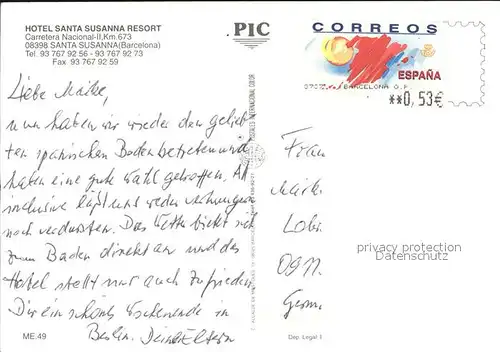 HOTEL SANTA SUSANNA RESORT
Carretera Nacional-II,Km.673
08398 SANTA SUSANNA(Barcelona)
Tel. 93 767 92 56 - 93 767 92 73
Fax. 93 767 92 59
PIC
CORREOS
ESPAÑA
BARCELONA O.P.
**0,53€
Liebe Maike,
nun haben wir wieder den gelieb
ten spanischen Boden betreten und
haben eine gute Wahl getroffen. All
inclusive läßt uns weder verhungern
noch verdursten. Das Wetter bietet sich
zum Baden direkt an und das
Hotel stellt uns auch zufrieden.
Dir ein schönes Wochenende in
Berlin. Deine Eltern
Frau
privacy protection
Datenschutz
Germ
ME.49
Dep. Legal